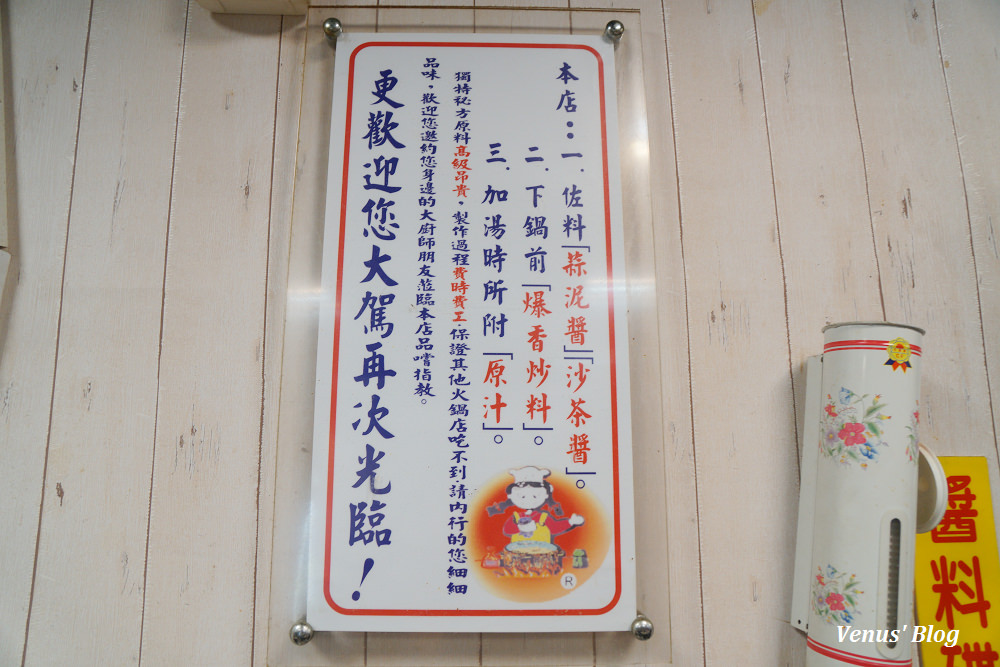 本店：一. 佐料「蒜泥醬」「沙茶醬」。
二. 下鍋前「爆香炒料」。
三. 加湯時所附「原汁」。
獨特秘方原料高級昂貴，製作過程費時費工·保證其他火鍋店吃不到·請內行的您細細
品味，歡迎您邀約您身邊的大廚師朋友蒞臨本店品嚐指教。
更歡迎您大駕再次光臨！
®
醬料
Venus' Blog